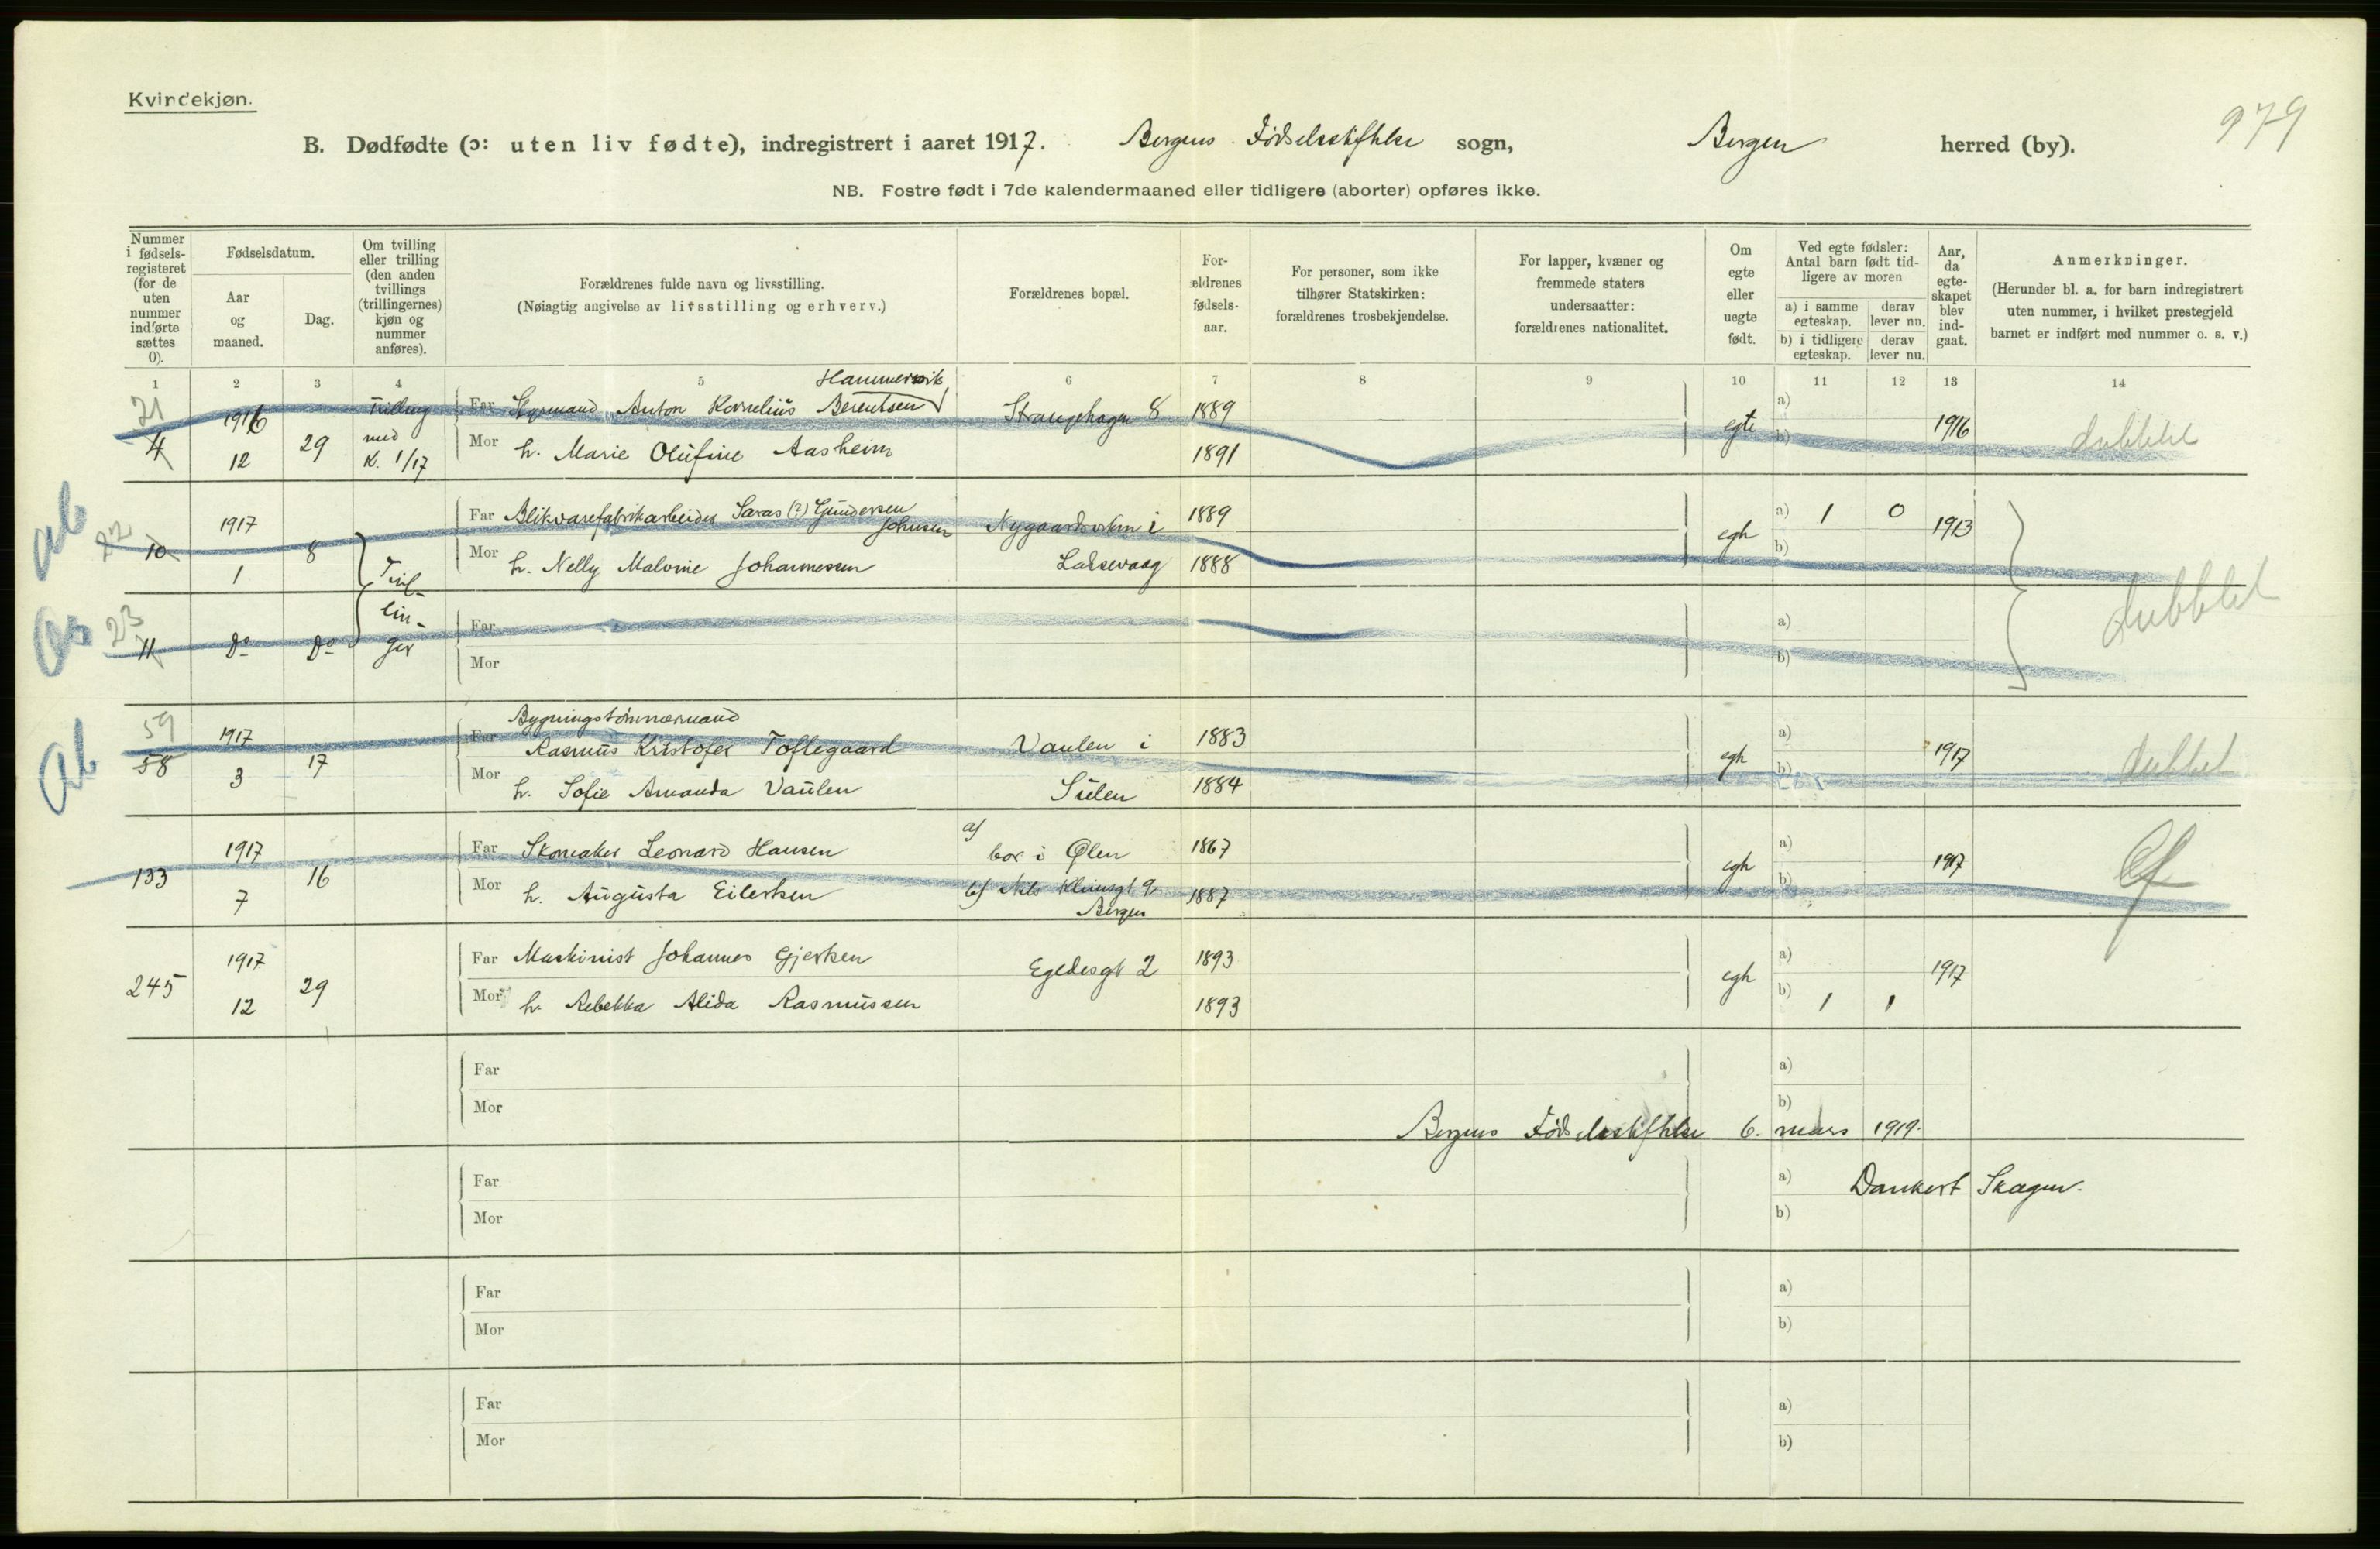 Kvindekjøn.
979
B. Dødfødte (ɔ: uten liv fødte), indregistrert i aaret 1917. Bergens Fødselsstiftelse sogn, Bergen herred (by).
NB. Fostre født i 7de kalendermaaned eller tidligere (aborter) opføres ikke.
Nummer i fødsels-registeret (for de uten nummer indførte sættes 0).
Fødselsdatum.
Aar og maaned.
Dag.
Om tvilling eller trilling (den anden tvillings (trillingernes) kjøn og nummer anføres).
Forældrenes fulde navn og livsstilling.
(Nøiagtig angivelse av livsstilling og erhverv.)
Forældrenes bopæl.
For-ældrenes fødsels-aar.
For personer, som ikke tilhører Statskirken: forældrenes trosbekjendelse.
For lapper, kvæner og fremmede staters undersaatter: forældrenes nationalitet.
Om egte eller uegte født.
Ved egte fødsler: Antal barn født tid-ligere av moren
a) i samme egteskap.
derav lever nu.
b) i tidligere egteskap.
derav lever nu.
Aar, da egte-skapet blev ind-gaat.
Anmerkninger.
(Herunder bl. a. for barn indregistrert uten nummer, i hvilket prestegjeld barnet er indført med nummer o. s. v.)
1 2 3 4 5 6 7 8 9 10 11 12 13 14
Hammersvik
21 1916 Tvilling Far Styrmand Anton Kornelius Berentsen Strangehagen 8 1889 egte a) 1916 dubblet
4 12 29 med K. 1/17 Mor h. Marie Olufine Aasheim 1891 b)
ab 22 1917 Far Blikvarefabrikarbeider Saras (?) Gundersen Johnsen Nygaardsvikn i 1889 egte a) 1 0 1913
10 1 8 Mor h. Nelly Malvine Johannessen Laksevaag 1888 b)
Tvil-lin-ger
dubblet
ab 23 11 do do Far a)
Mor b)
ab 59 1917 Bygningstømmermand
58 3 17 Far Rasmus Kristofer Toftegaard Vaulen i 1883 egte a) 1917 dubblet
Mor h. Sofie Amanda Vaulen Sulen 1884 b)
133 1917 7 16 Far Skomaker Leonard Hansen a) bor i Ølen 1867 egte a) 1917
Mor h. Augusta Eilertsen b) Nils Klimsgt. 9 Bergen 1887 b)
245 1917 12 29 Far Maskinist Johannes Gjertsen Egedesgt 2 1893 egte a) 1917
Mor h. Rebekka Alida Rasmussen 1893 b) 1 1
Far a)
Mor b)
Bergens Fødselsstiftelse 6. mars 1919.
Far a) Dankert Skagen.
Mor b)
Far a)
Mor b)
Far a)
Mor b)